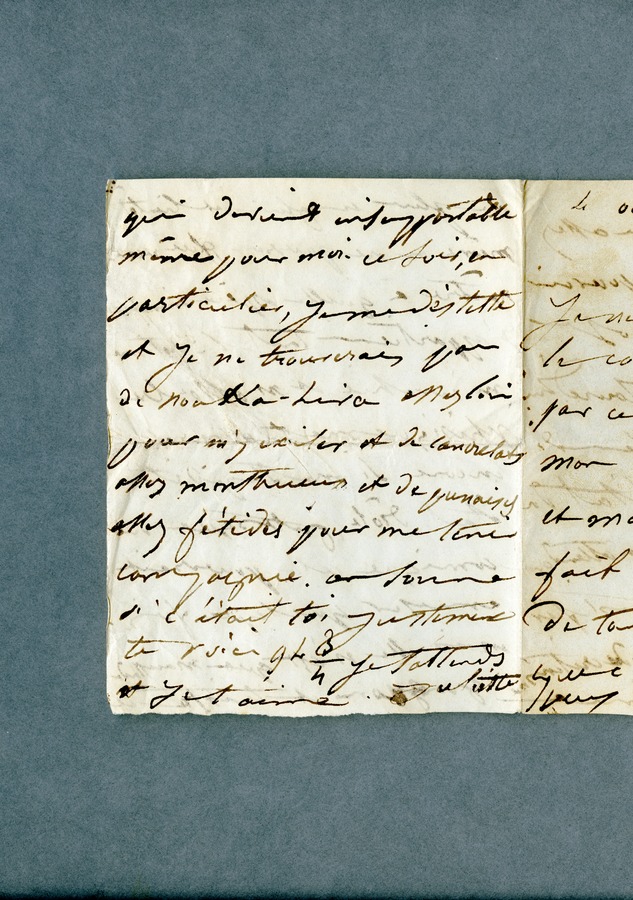 qui devient insupportable
même pour moi. ce soir, en
particulier, je me déteste
et je ne trouverais pas
de nouka-hiva assez loin
pour m'y exiler et de cancrelats
assez monstrueux et de punaises
assez fétides pour me tenir
compagnie. on sonne
si c'était toi justement
te voici 9h 3/4 je t'attends
et je t'aime. Juliette
4
Je
le co
par ce
mon
et ma
fait
de
que